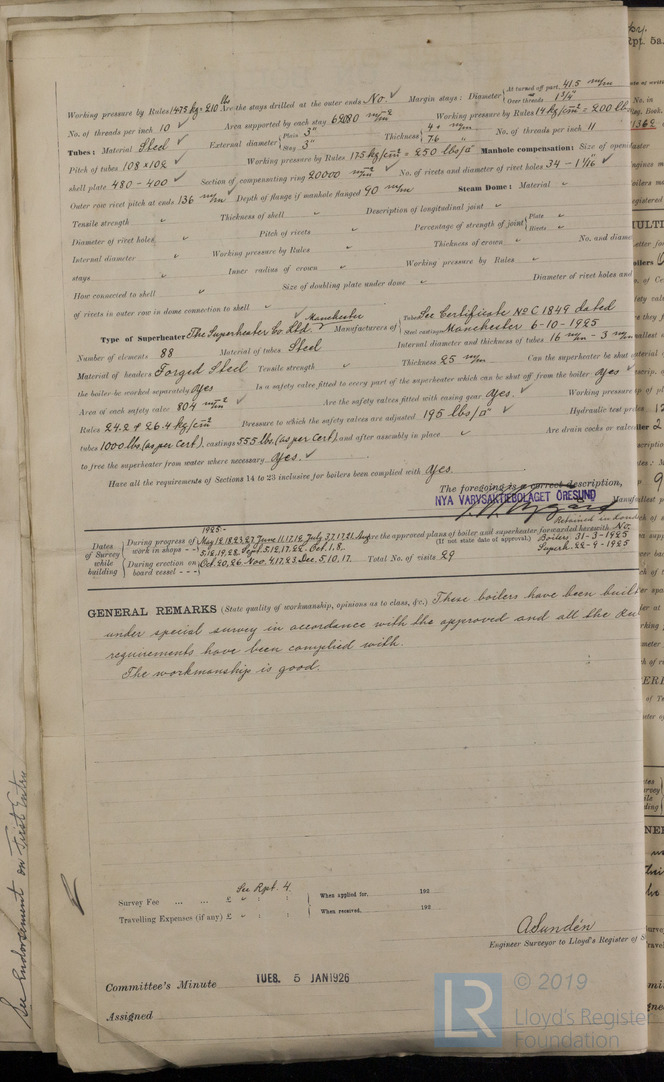 Working pressure by Rules 14.75 kg = 210 lbs Are the stays drilled at the outer ends No. ✓ Margin stays: Diameter { At turned off part, 41.5 m/m Over threads 1 3/4"
No. of threads per inch 10 ✓ Area supported by each stay 62080 m/m² Working pressure by Rules 14 kg/cm² = 200 lb
Tubes: Material Steel ✓ External diameter { Plain 3" Stay 3" Thickness { 4 m/m No. of threads per inch 11
Pitch of tubes 108 x 102 ✓ Working pressure by Rules 17.5 kg/cm² = 250 lbs/□" Manhole compensation: Size of open
shell plate 480 - 400 ✓ Section of compensating ring 20000 m/m² No. of rivets and diameter of rivet holes 34 - 1 1/16 ✓
Outer row rivet pitch at ends 136 m/m Depth of flange if manhole flanged 90 m/m Steam Dome: Material ✓
Tensile strength ✓ Thickness of shell ✓ Description of longitudinal joint ✓
Diameter of rivet holes ✓ Pitch of rivets ✓ Percentage of strength of joint { Plate ✓ Rivets ✓
Internal diameter ✓ Working pressure by Rules ✓ Thickness of crown ✓ No. and diame
stays ✓ Inner radius of crown ✓ Working pressure by Rules ✓
How connected to shell ✓ Size of doubling plate under dome ✓ Diameter of rivet holes and
of rivets in outer row in dome connection to shell ✓
Type of Superheater The Superheater Co. Ltd. Manchester ✓ Manufacturers of { Tubes Steel castings See Certificate No C 1849 dated Manchester 6-10-1925
Number of elements 88 Material of tubes Steel Internal diameter and thickness of tubes 16 m/m - 3 m/m
Material of headers Forged Steel Tensile strength ✓ Thickness 25 m/m Can the superheater be shut
the boiler be worked separately yes Is a safety valve fitted to every part of the superheater which can be shut off from the boiler yes ✓
Area of each safety valve 804 m/m² ✓ Are the safety valves fitted with easing gear yes. ✓ Working pressure
Rules 24.2 & 26.4 kg/cm² Pressure to which the safety valves are adjusted 195 lbs/□" ✓ Hydraulic test pre
tubes 1000 lbs. (as per Cert), castings 555 lbs. (as per Cert) and after assembly in place ✓ Are drain cocks or valve
to free the superheater from water where necessary yes. ✓
Have all the requirements of Sections 14 to 23 inclusive for boilers been complied with yes.
The foregoing is a correct description,
NYA VARVSAKTIEBOLAGET ÖRESUND Manuf
Retained in London
Dates of Survey while building { During progress of work in shops - - 1925:- May 12,18,23,27, June 11,17,12, July 3,7,17,21, Aug 5,12,19,28, Sept. 5,12,17,22. Oct. 1,8. Are the approved plans of boiler and superheater forwarded herewith No. (If not state date of approval.) Boilers 31-3-1925 Superh. 22-9-1925
During erection on board vessel - - - Oct. 20,26, Nov. 4,17,23, Dec. 5,10,17. Total No. of visits 29
GENERAL REMARKS (State quality of workmanship, opinions as to class, &c.) These boilers have been buil
under special survey in accordance with the approved and all the Ru
requirements have been complied with.
The workmanship is good.
See Endorsement on First Entry
Survey Fee ... ... £ See Rpt. 4. : : When applied for, 192
Travelling Expenses (if any) £ : : When received, 192
A Sundén
Engineer Surveyor to Lloyd's Register of S
Committee's Minute TUES. 5 JAN 1926
Assigned
LR © 2019
Lloyd's Register
Foundation